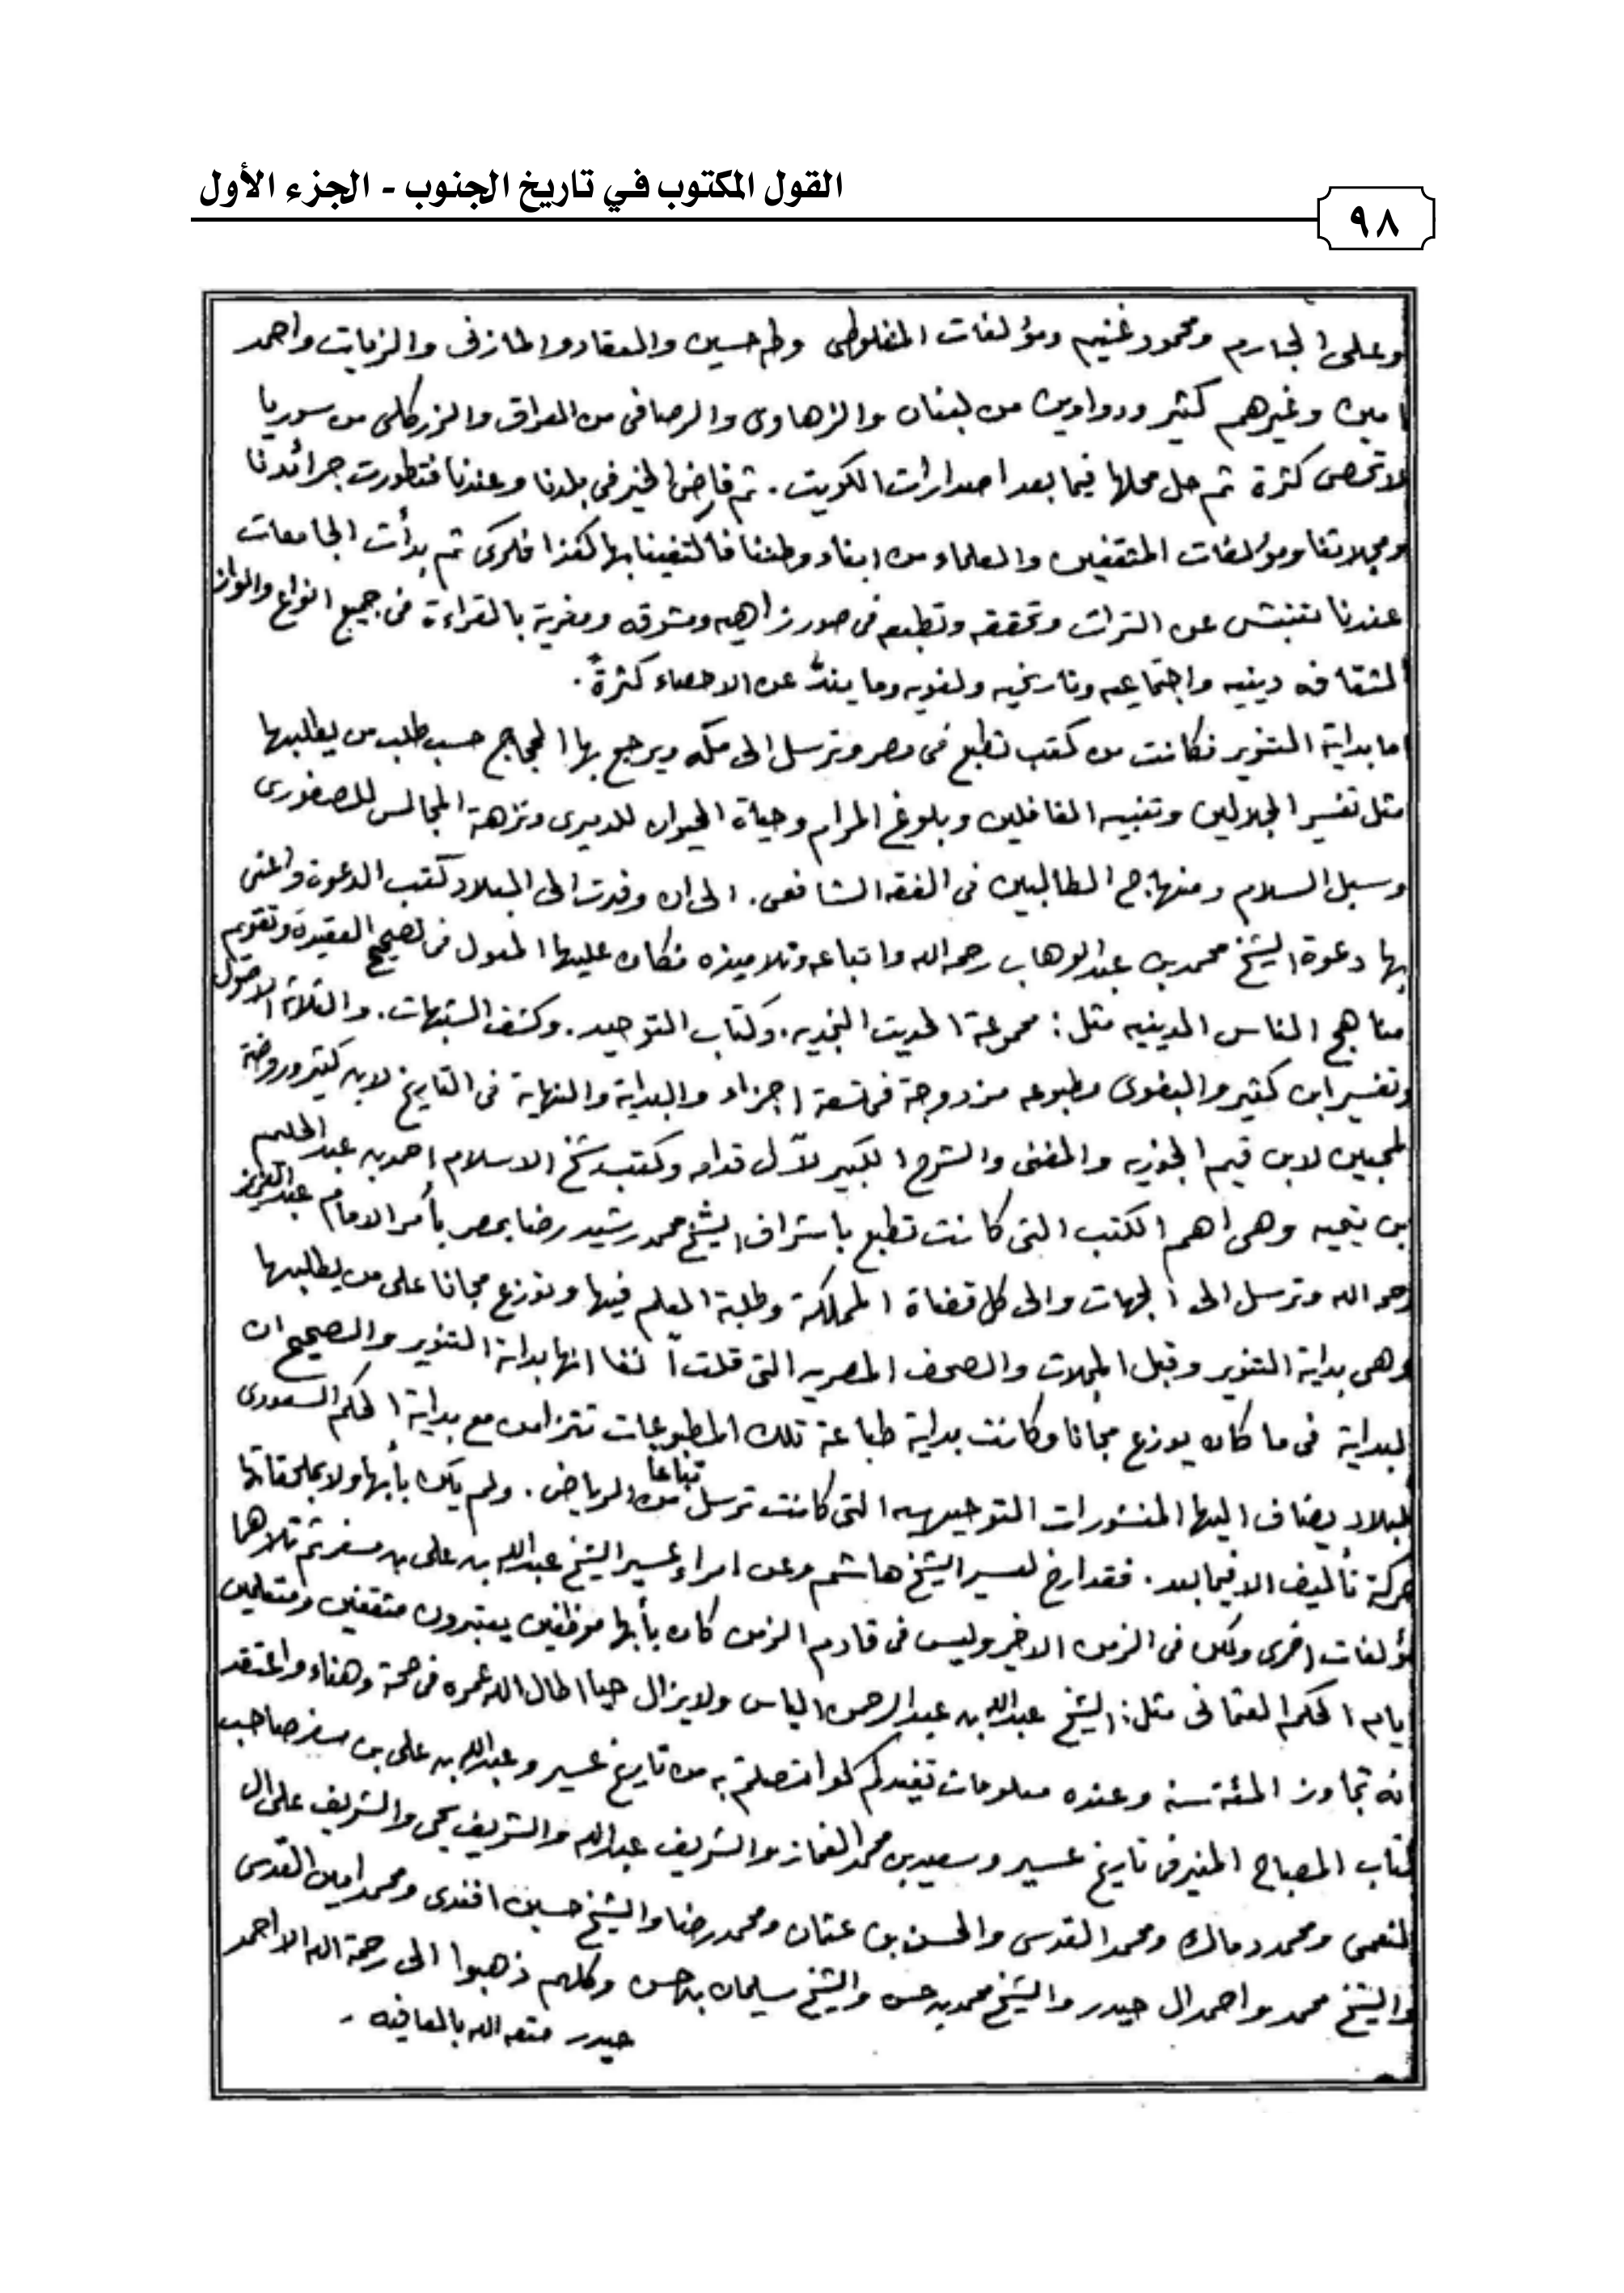 القول المكتوب في تاريخ الجنوب - الجزء الأول
٩٨
وعلى الجارم ومحمود غنيم ومؤلفات المنفلوطى وطه حسين والعقاد والمازنى والزيات واحمد
امين وغيرهم كثير ودواوين من لبنان والزهاوى والرصافى من العراق والزركلى من سوريا
لا تحصى كثرة ثم حل محلها فيما بعد اصدارات الكويت . ثم فاض الخير فى بلدنا وعندنا فتطورت جرائدنا
ومجلاتنا ومؤلفات المثقفين والعلماء من ابناء وطننا فاكتفينا بها كغذا فكرى ثم بدأت الجامعات
عندنا تنبش عن التراث وتحققه وتطبع فى صور زاهيه ومشوقه ومغرية بالقراءة فى جميع انواع والوان
الثقافه دينيه واجتماعيه وتاريخيه ولغويه وما يندُّ عن الاحصاء كثرةً .
اما بداية التنوير فكانت من كتب تطبع فى مصر وترسل الى مكه ويرجع بها الحجاج حسب طلب من يطلبها
مثل تفسير الجلالين وتنبيه الغافلين وبلوغ المرام وحياة الحيوان للدميرى ونزهة المجالس للصفورى
وسبل السلام ومنهاج الطالبين فى الفقه الشافعى . الى ان وفدت الى البلاد كتب الدعوة واعنى
بها دعوة الشيخ محمد بن عبدالوهاب رحمه الله واتباعه وتلاميذه فكان عليها المعول فى تصحيح العقيدة وتقويم
مناهج الناس الدينيه مثل : مجموعة الحديث النجديه . وكتاب التوحيد . وكشف الشبهات . والثلاثة الاصول
وتفسير ابن كثير والبغوى مطبوعه مزدوجة فى تسعة اجزاء والبداية والنهاية فى التاريخ لابن كثير وروضة
المحبين لابن قيم الجوزيه والمغنى والشرح الكبير لآل قدامه وكتب شيخ الاسلام احمد بن عبدالحليم
بن تيميه وهى اهم الكتب التى كانت تطبع باشراف الشيخ محمد رشيد رضا بمصر بأمر الامام عبدالعزيز
رحمه الله وترسل الى الجهات والى كل قضاة المملكة وطلبة العلم فيها وتوزع مجانا على من يطلبها
وهى بداية التنوير وقبل المجلات والصحف المصريه التى قلت آنفا انها بداية التنوير والصحيح ان
البداية فى ما كان يوزع مجانا وكانت بداية طباعة تلك المطبوعات تتزامن مع بداية الحكم السعودى
للبلاد يضاف اليها المنشورات التوجيهيه التى كانت ترسل تباعا من الرياض . ولم يكن بأبها ولا بملحقاتها
حركة تأليف الا فيما بعد . فقد ارخ لعسير الشيخ هاشم وعن امراء عسير الشيخ عبدالله بن على بن مسفر ثم تلاهما
مؤلفات اخرى ولكن فى الزمن الاخير وليس فى قادم الزمن كان بأبها موظفين يعتبرون مثقفين ومتعلمين
ايام الحكم العثمانى مثل : الشيخ عبدالله بن عبدالرحمن الياس ولا يزال حيا اطال الله عمره فى صحة وهناء واعتقد
انه تجاوز المئة سنه وعنده معلومات تفيدكم لو اتصلتم به من تاريخ عسير وعبدالله بن على بن مسفر صاحب
كتاب المصباح المنير فى تاريخ عسير وسعيد بن محمد الغماز والشريف عبدالله والشريف يحى والشريف على ال
النعمى ومحمد دمالك ومحمد القدسى والحسن بن عثمان ومحمد رضا والشيخ حسين افندى ومحمد امين القدسى
والشيخ محمد واحمد ال حيدر والشيخ محمد بن حسن والشيخ سليمان بن حسن وكلهم ذهبوا الى رحمة الله الا احمد
حيدر متعه الله بالعافيه .